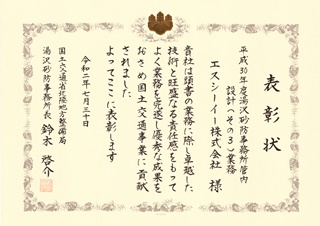 表彰状
平成30年度湯沢砂防事務所管内
設計(その3)業務
エスシーイー株式会社 様
貴社は頭書の業務に際し卓越した
技術と旺盛なる責任感をもって
よく業務を完遂し優秀な成果を
おさめ国土交通事業に貢献
されました
よってここに表彰します
令和二年七月三十日
国土交通省北陸地方整備局
湯沢砂防事務所長 鈴木 啓介